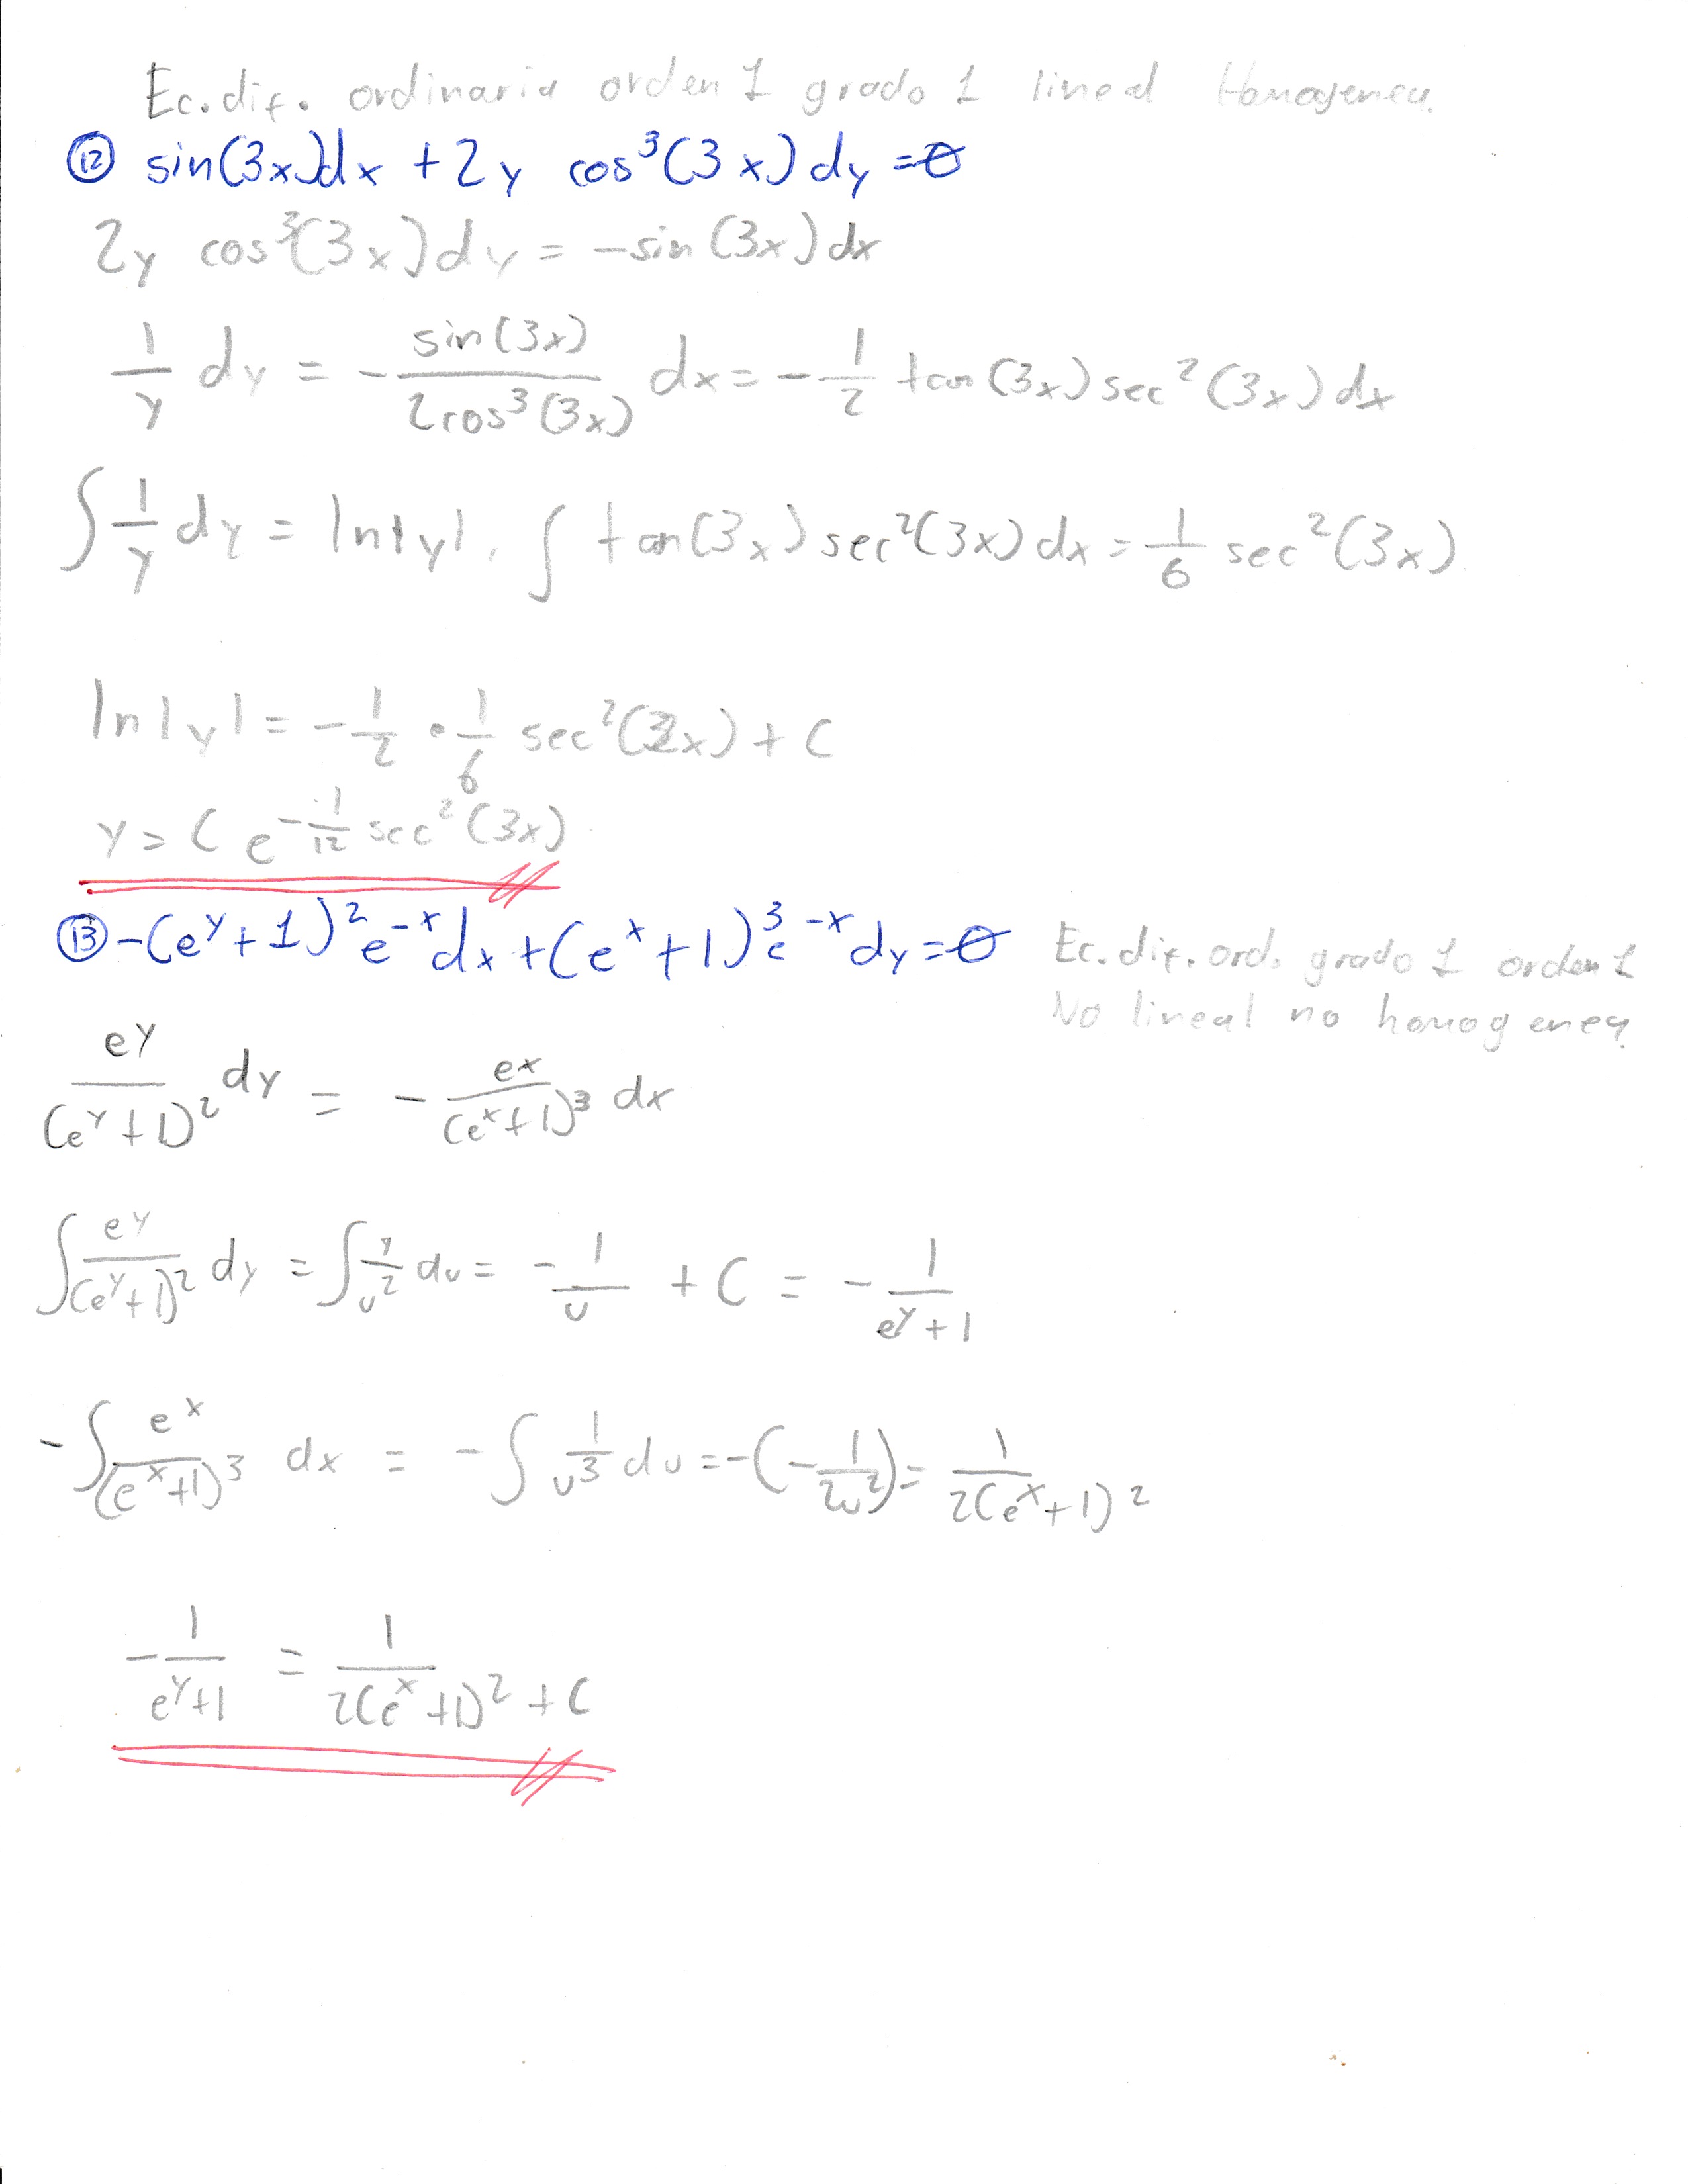 Ec. dif. ordinaria orden 1 grado 1 lineal Homogenea.
⑫ sin(3x)dx + 2y cos³(3x)dy = 0
2y cos³(3x)dy = -sin(3x)dx
1/y dy = - sin(3x)/2cos³(3x) dx = - 1/2 tan(3x) sec²(3x) dx
∫ 1/y dy = ln|y|, ∫ tan(3x) sec²(3x) dx = 1/6 sec²(3x)
ln|y| = - 1/2 • 1/6 sec²(3x) + C
y = C e^(-1/12 sec²(3x))
⑬ -(e^y + 1)² e^-x dx + (e^x + 1)³ e^-x dy = 0 Ec. dif. ord. grado 1 orden 1
No lineal no homogenea
e^y/(e^y + 1)² dy = - e^x/(e^x + 1)³ dx
∫ e^y/(e^y + 1)² dy = ∫ 1/u² du = - 1/u + C = - 1/(e^y + 1)
- ∫ e^x/(e^x + 1)³ dx = - ∫ 1/u³ du = -(- 1/2u²) = 1/2(e^x + 1)²
- 1/(e^y + 1) = 1/2(e^x + 1)² + C